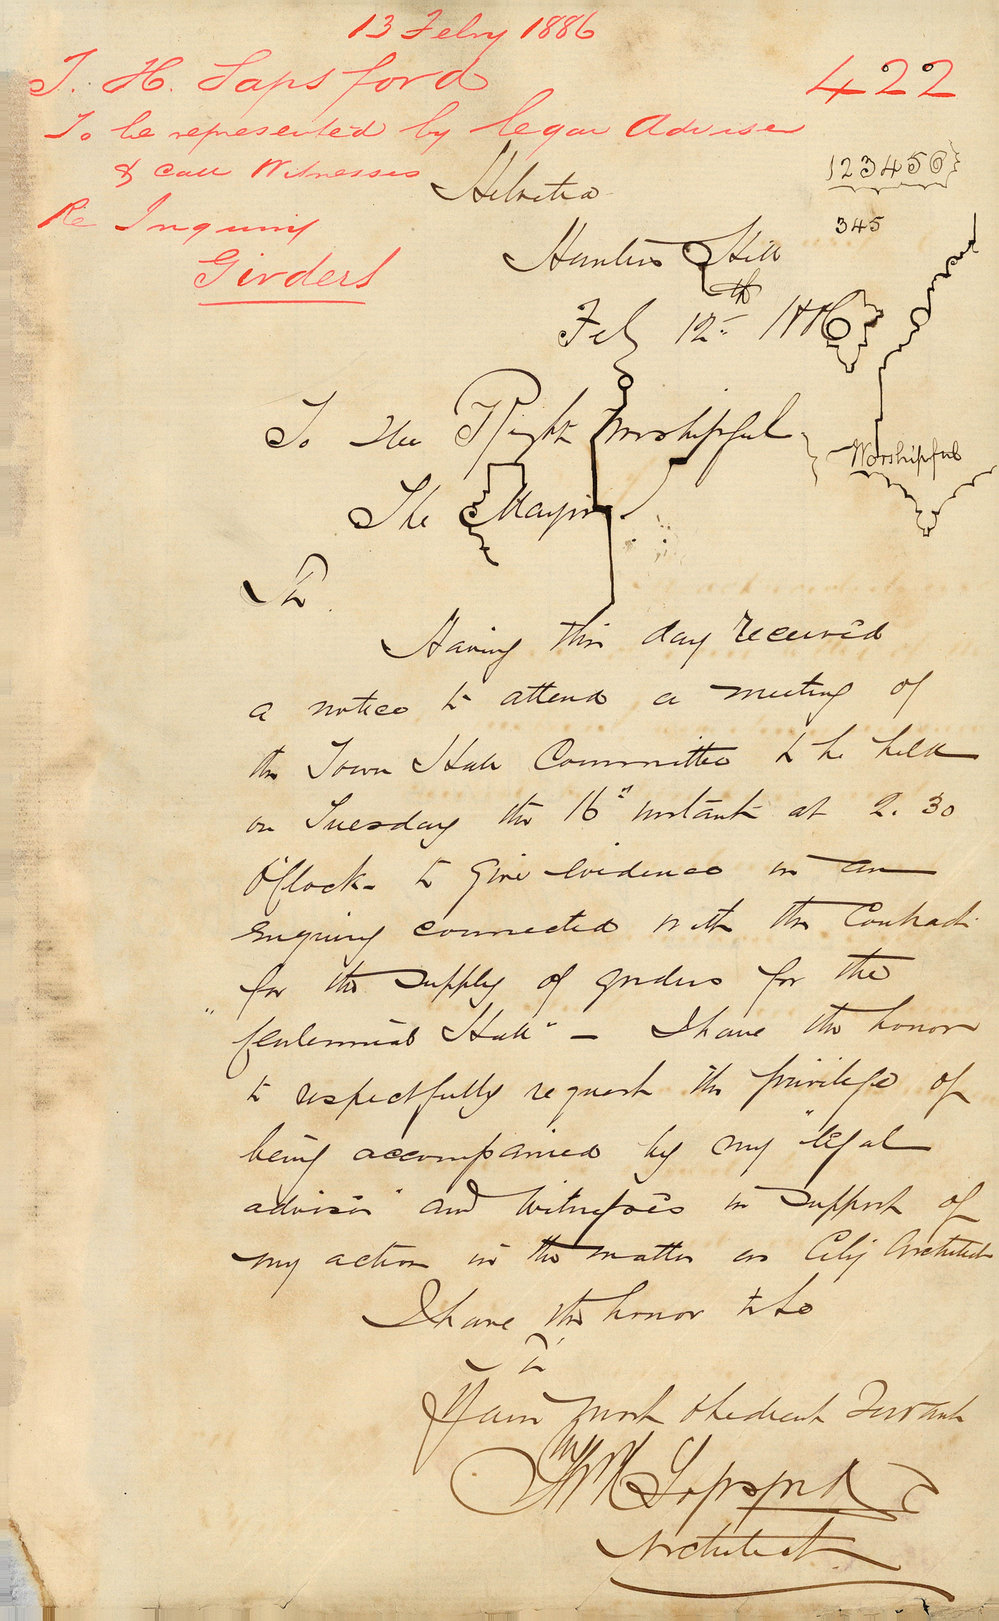 13 Febry 1886
T. H. Sapsford
422
To be represented by legal Adviser
& Call Witnesses
Re Inquiry
Girders
123456
345
Helvetia
Hunters Hill
Feb 12th 1886
To the Right Worshipful
Worshipful
The Mayor
Sir
Having this day received
a notice to attend a meeting of
the Town Hall Committee to be held
on Tuesday the 16" instant at 2.30
O'Clock to give evidence in an
enquiry connected with the Contract
for the supply of girders for the
"Centennial Hall" - I have the honor
to respectfully request the privilege of
being accompanied by my "legal
adviser" and witnesses in support of
my action in the matter as City Architect
I have the honor to be
Sir
Your most obedient Servant
Thos H Sapsford
Architect